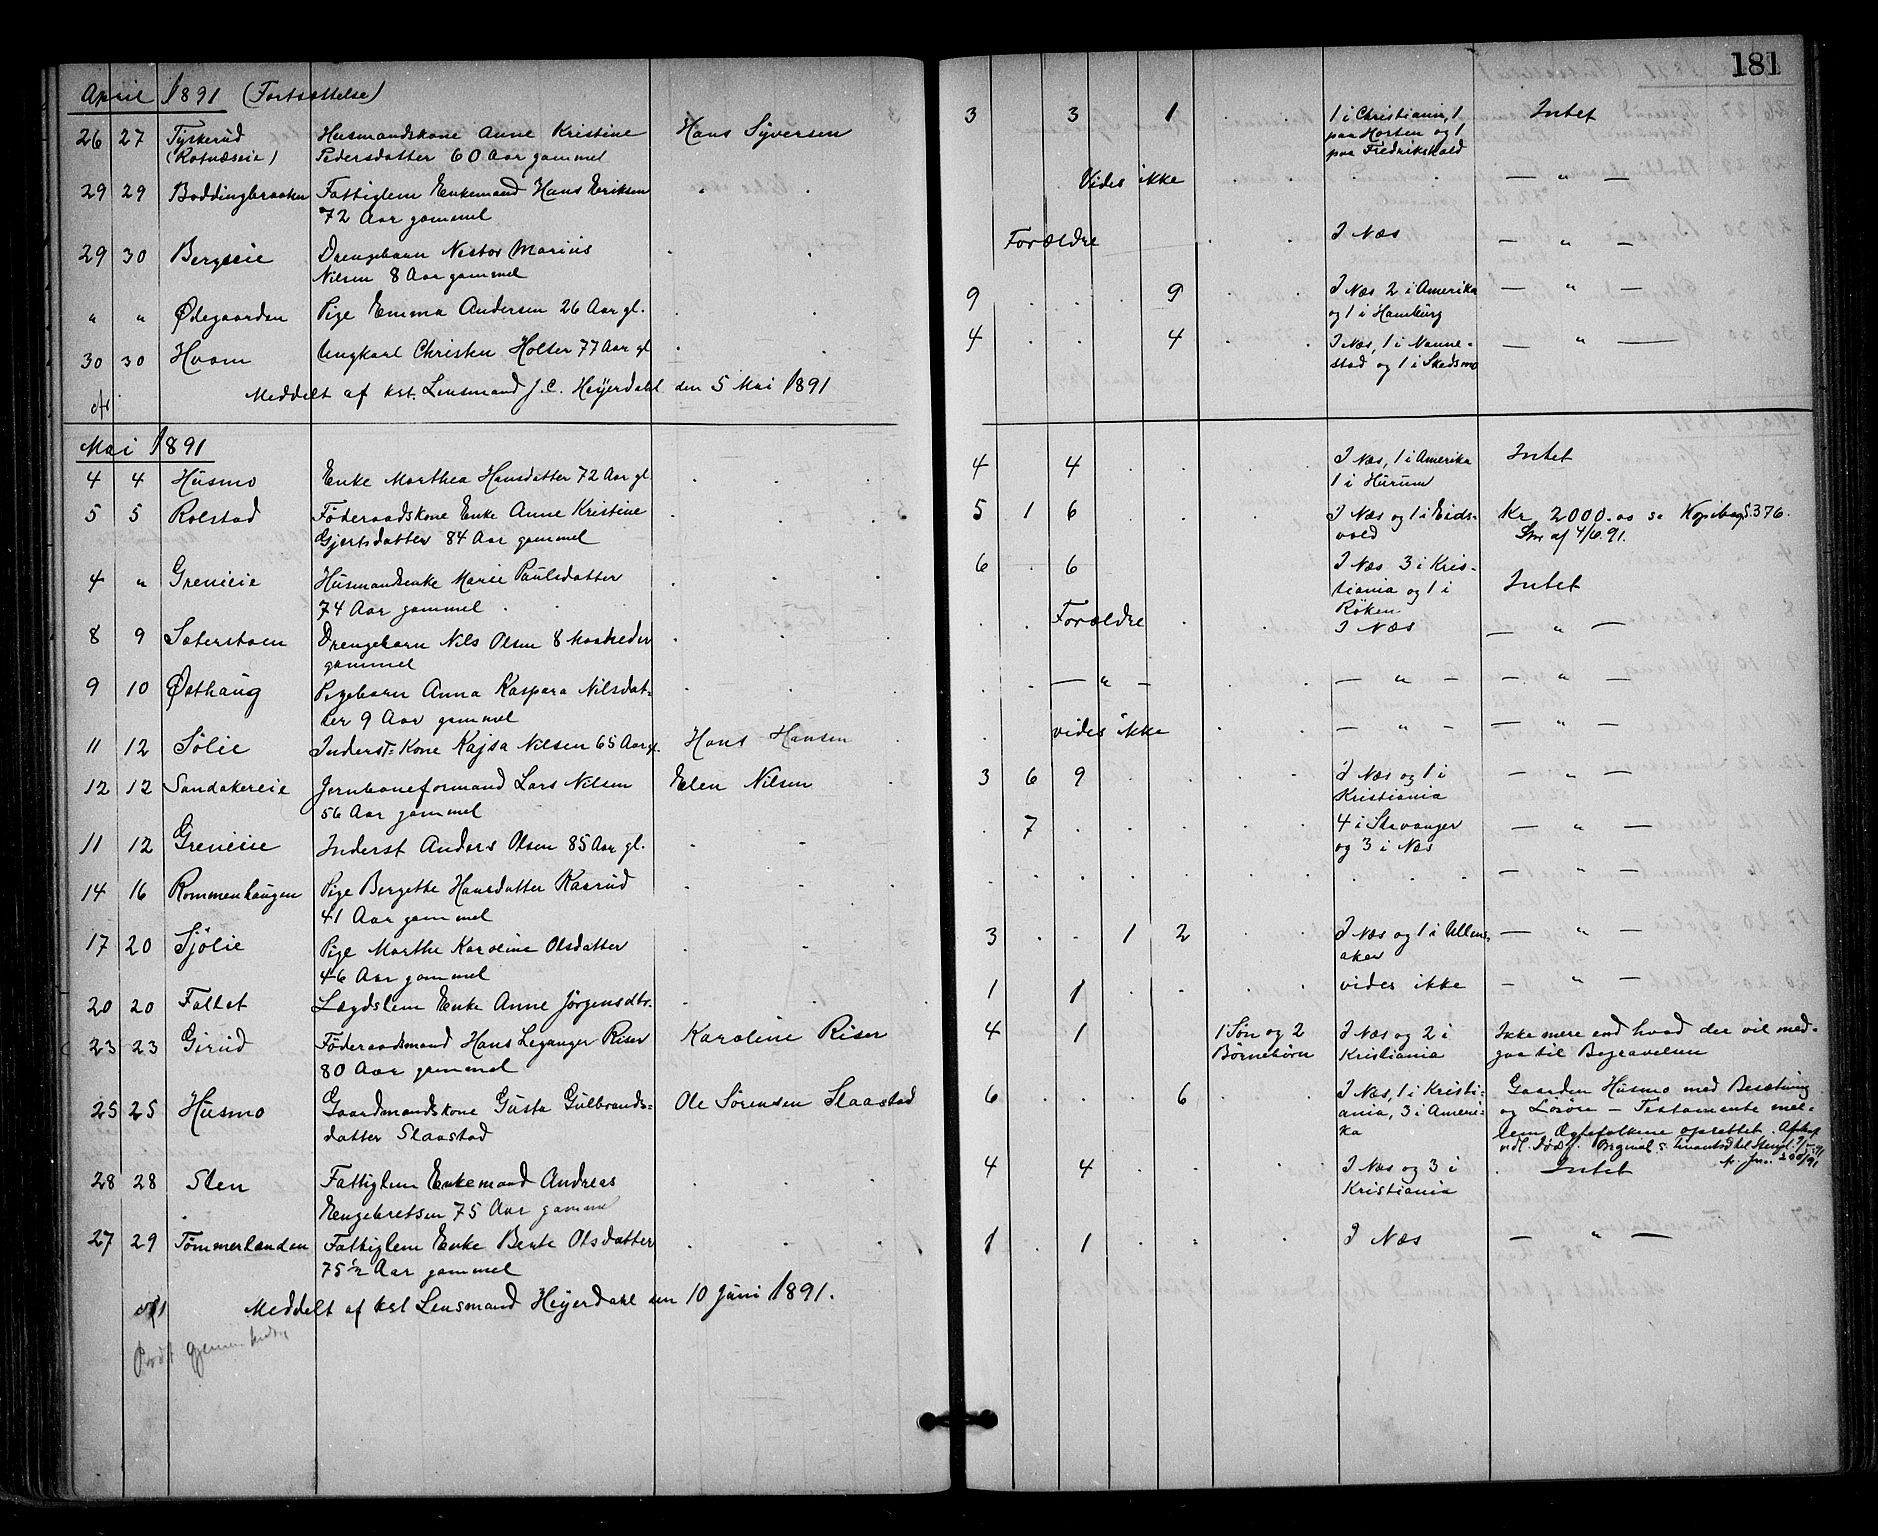 181
April 1891 (Fortsættelse)
26 27 Tyskerud Husmandskone Anne Kristine Hans Syversen 3 3 1 1 i Christiania, 1 Intet
(Rotnæseie) Pedersdatter 60 Aar gammel paa Horten og 1
paa Fredrikshald
29 29 Boddingbraaten Fattiglem Enkemand Hans Eriksen Vides ikke — " —
72 Aar gammel
29 30 Bergseie Drengebarn Nestor Marius Forældre I Næs — " —
Nilsen 8 Aar gammel
" " Ødegaarden Pige Emma Andersen 26 Aar gl. 9 9 I Næs 2 i Amerika — " —
og 1 i Hamburg
30 30 Hvam Ungkarl Christen Holter 77 Aar gl 4 4 I Næs, 1 i Nanne-
stad og 1 i Skedsmo — " —
Meddelt af kst. Lensmand J. C. Heyerdahl den 5 Mai 1891
Mai 1891
4 4 Husmo Enke Marthea Hansdatter 72 Aar gl 4 4 I Næs, 1 i Amerika Intet
1 i Hurum
5 5 Rolstad Föderaadskone Enke Anne Kristine 5 1 6 I Næs og 1 i Eids- Kr 2000.00 se Kopibog S. 376.
Gjertsdatter 84 Aar gammel vold af 4/6.91.
4 " Grenieie Husmandsenke Marie Paulsdatter 6 6 I Næs 3 i Kris-
74 Aar gammel tiania og 1 i Intet
Röken
8 9 Soterstoen Drengebarn Nils Olsen 8 Maaneder Forældre I Næs — " —
gammel
9 10 Østhaug Pigebarn Anna Kaspara Nilsdat- — " — — " — — " —
ter 9 Aar gammel
11 12 Sölie Inderst-Kone Kajsa Nilsen 65 Aar gl. Hans Hansen vides ikke — " — — " —
12 12 Sandakereie Jernbaneformand Lars Nilsen Elen Nilsen 3 6 9 I Næs og 1 i — " —
56 Aar gammel Kristiania
11 12 Grenieie Inderst Anders Olsen 85 Aar gl. 7 4 i Stavanger — " —
og 3 i Næs
14 16 Rommenhaugen Pige Bergethe Hansdatter Kasrud — " —
41 Aar gammel
17 20 Sjölie Pige Marthe Karoline Olsdatter 3 1 2 I Næs og 1 i Ullens- — " —
46 Aar gammel aker
20 20 Fallet Lægdslem Enke Anne Jörgensdtr. 1 1 vides ikke — " —
23 23 Girud Föderaadsmand Hans Leganger Riser Karoline Riser 4 1 1 Sön og 2 I Næs og 2 i Ikke mere end hvad der vil med-
80 Aar gammel Börnebörn Kristiania gaa til Begravelsen
25 25 Husmo Gaardmandskone Gusta Gulbrands- Ole Sörensen Slaastad 6 6 I Næs, 1 i Kristi- Gaarden Husmo med Besætning
datter Slaastad ania, 3 i Ameri- og Lösöre — Testamente mel-
ka lem Ægtefolkene oprettet.
28 28 Sten Fattiglem Enkemand Andreas 4 4 I Næs og 3 i Intet
Engebretsen 75 Aar gammel Kristiania
27 29 Tömmerlanden Fattiglem Enke Berte Olsdatter 1 1 I Næs — " —
75 1/2 Aar gammel
Meddelt af kst Lensmand Heyerdahl den 10 Juni 1891.